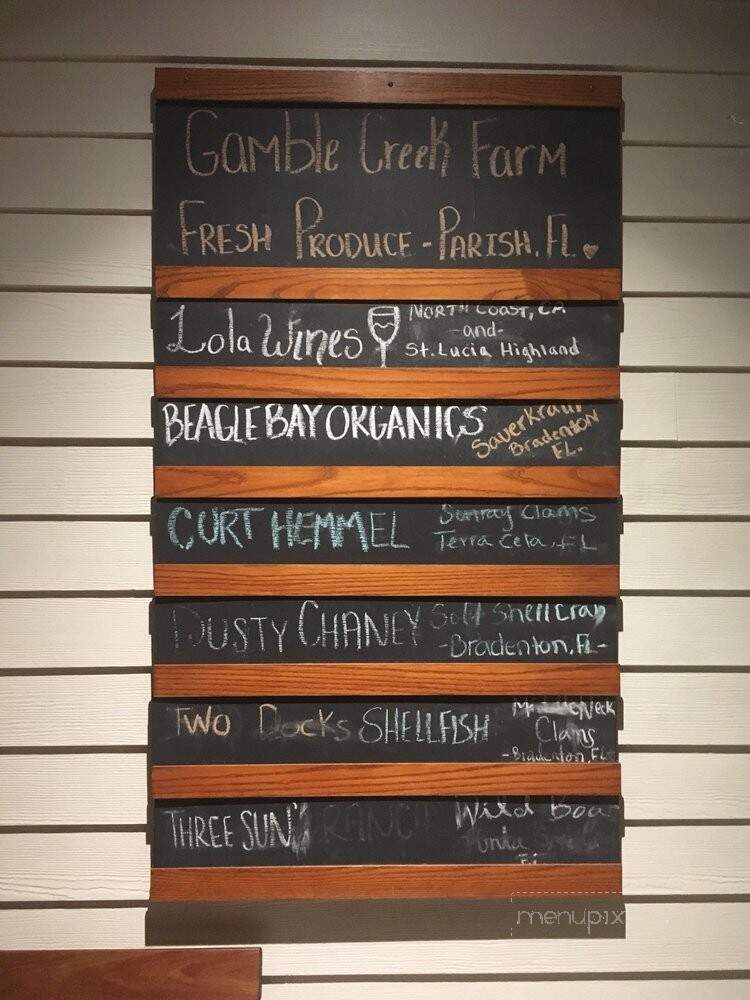 Gamble Creek Farm
FRESH PRODUCE - PARISH, FL.
Lola Wines
NORTH COAST, CA
-and-
St. Lucia Highland
BEAGLE BAY ORGANICS
Sauerkraut
Bradenton
FL.
CURT HEMMEL
Sunray Clams
Terra Ceia, FL
DUSTY CHANEY
Soft Shell Crab
-Bradenton, FL-
TWO Docks SHELLFISH
Middleneck
Clams
-Bradenton, FL-
THREE SUN'S RANCH
Wild Boar
Punta
menupix